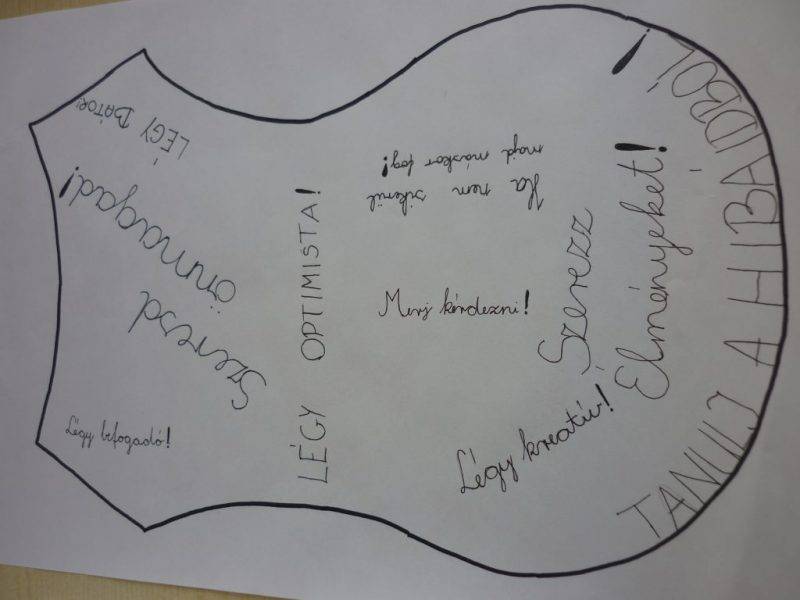 LÉGY BÁTOR!
Szeresd
önmagad!
Légy befogadó!
LÉGY OPTIMISTA!
Ha nem sikerül
majd máskor fog!
Merj kérdezni!
Légy kreatív!
Szerezz
Élményeket!
TANULJ A HIBÁDBÓL!